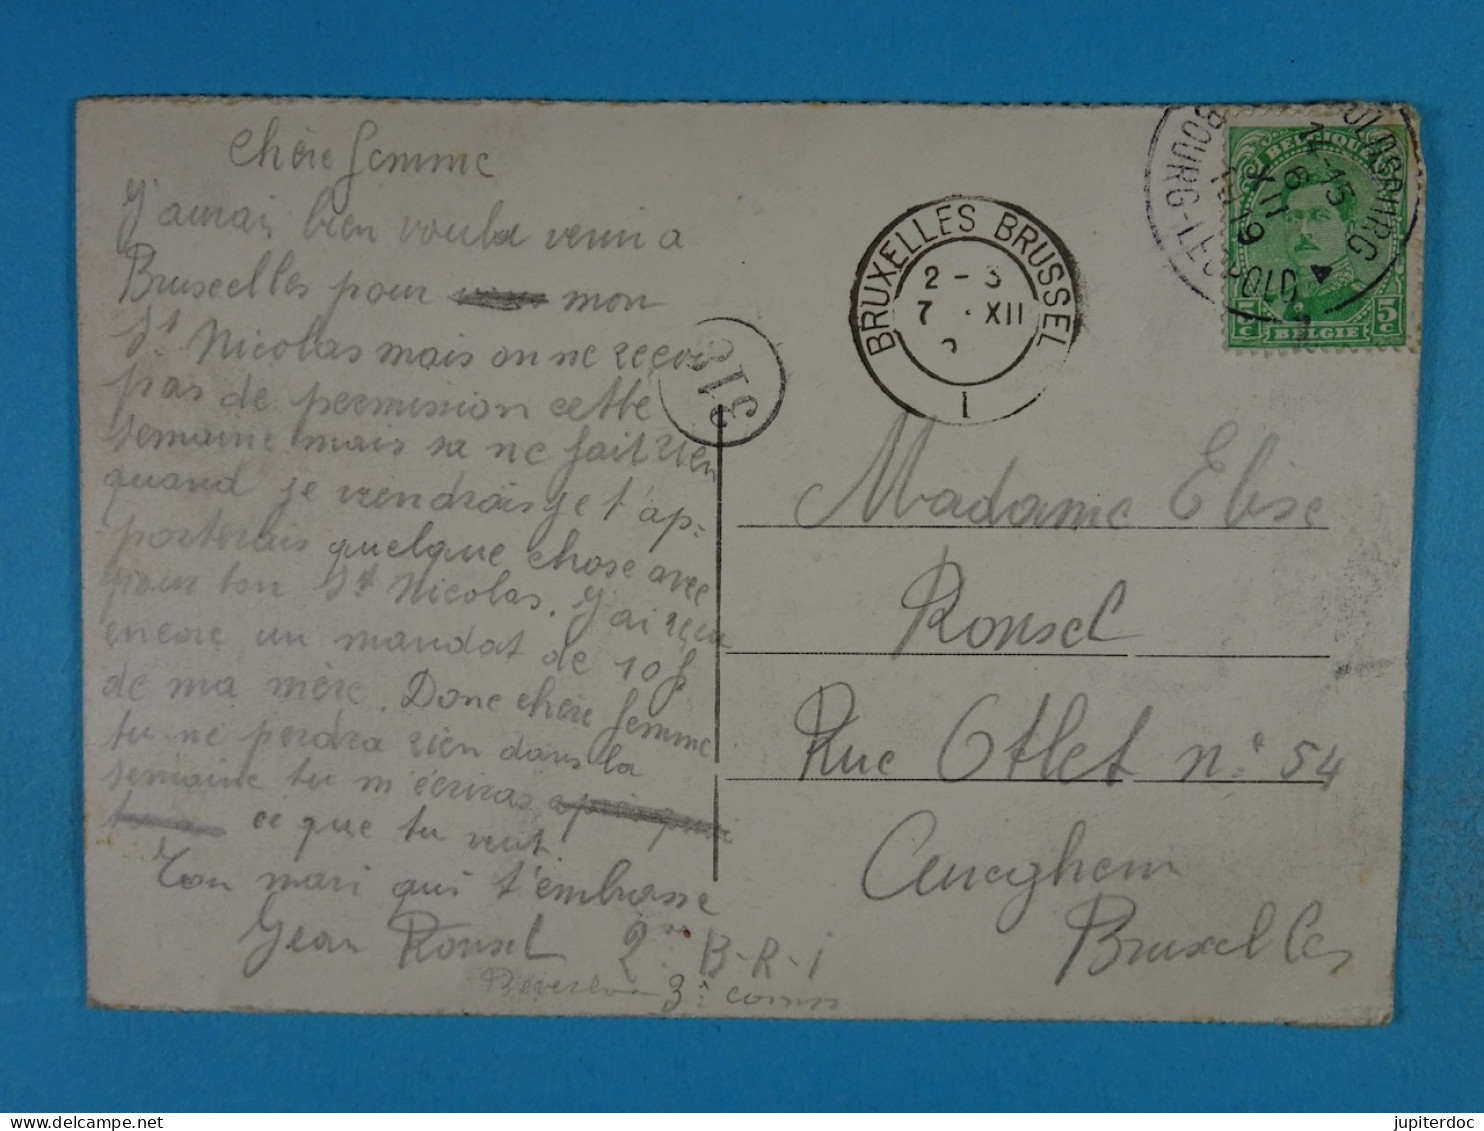 Chère femme
J'aurai bien voulu venir a
Bruxelles pour mon
St Nicolas mais on ne reçoi
pas de permission cette
semaine mais sa ne fait rien
quand je viendrais je t'ap=
porterais quelque chose avec
pour ton St Nicolas. J'ai reçu
encore un mandat de 10 f
de ma mère. Donc chère femme
tu ne perdra rien dans la
semaine tu m'écriras
ce que tu veut
Ton mari qui t'embrasse
Jean Ronsel 2 B-R-i
3e
BRUXELLES BRUSSEL
2 - 3
7 XII
1
BELGIQUE
5c BELGIE 5c
Madame Elise
Ronsel
Rue Otlet n° 54
Cureghem
Bruxelles
jupiterdoc